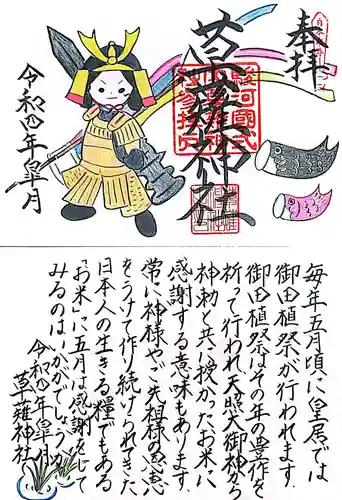 奉拝
草薙神社
令和四年皐月
駿河國式
毎年五月頃に皇居では
御田植祭が行われます。
御田植祭はその年の豊作を
祈って行われ天照大御神から
神勅と共に授かったお米に
感謝する意味もあります。
常に神様やご先祖様の恩恵
をうけて作り続けられてきた
日本人の生きる糧でもある
「お米」に五月は感謝をして
みるのはいかがでしょうか
令和四年皐月
草薙神社